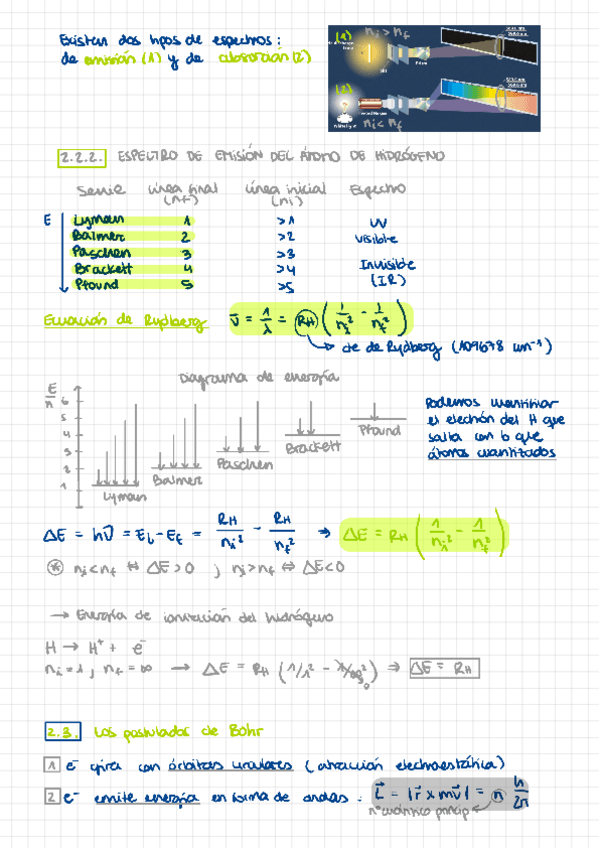 Existen dos tipos de espectros:
de emisión (1) y de absorción (2)
(1) ni > nf
(2)
ni < nf
2.2.2. ESPECTRO DE EMISIÓN DEL ÁTOMO DE HIDRÓGENO
Serie Línea final (nf) Línea inicial (ni) Espectro
E Lyman 1 >1 UV
Balmer 2 >2 Visible
Paschen 3 >3 Invisible
Brackett 4 >4 (IR)
Pfund 5 >5
Ecuación de Rydberg ν̄ = 1/λ = RH (1/ni² - 1/nf²)
cte de Rydberg (109678 cm⁻¹)
Diagrama de energía
E
n 6
5
4
3
2
1
Lyman
Balmer
Paschen
Brackett
Pfund
Podemos cuantificar
el electrón del H que
salta con lo que
átomos cuantizados
ΔE = hν = Ei - Ef = RH/ni² - RH/nf² → ΔE = RH (1/ni² - 1/nf²)
* ni<nf ⇔ ΔE>0 ; ni>nf ⇔ ΔE<0
→ Energía de ionización del hidrógeno
H → H⁺ + e⁻
ni = 1 ; nf = ∞ → ΔE = RH (1/1² - 1/∞²) 0 → ΔE = RH
2.3. Los postulados de Bohr
1 e⁻ gira con órbitas circulares (atracción electroestática)
2 e⁻ emite energía en forma de ondas: L = |r x mv| = n h/2π
nº cuántico princip